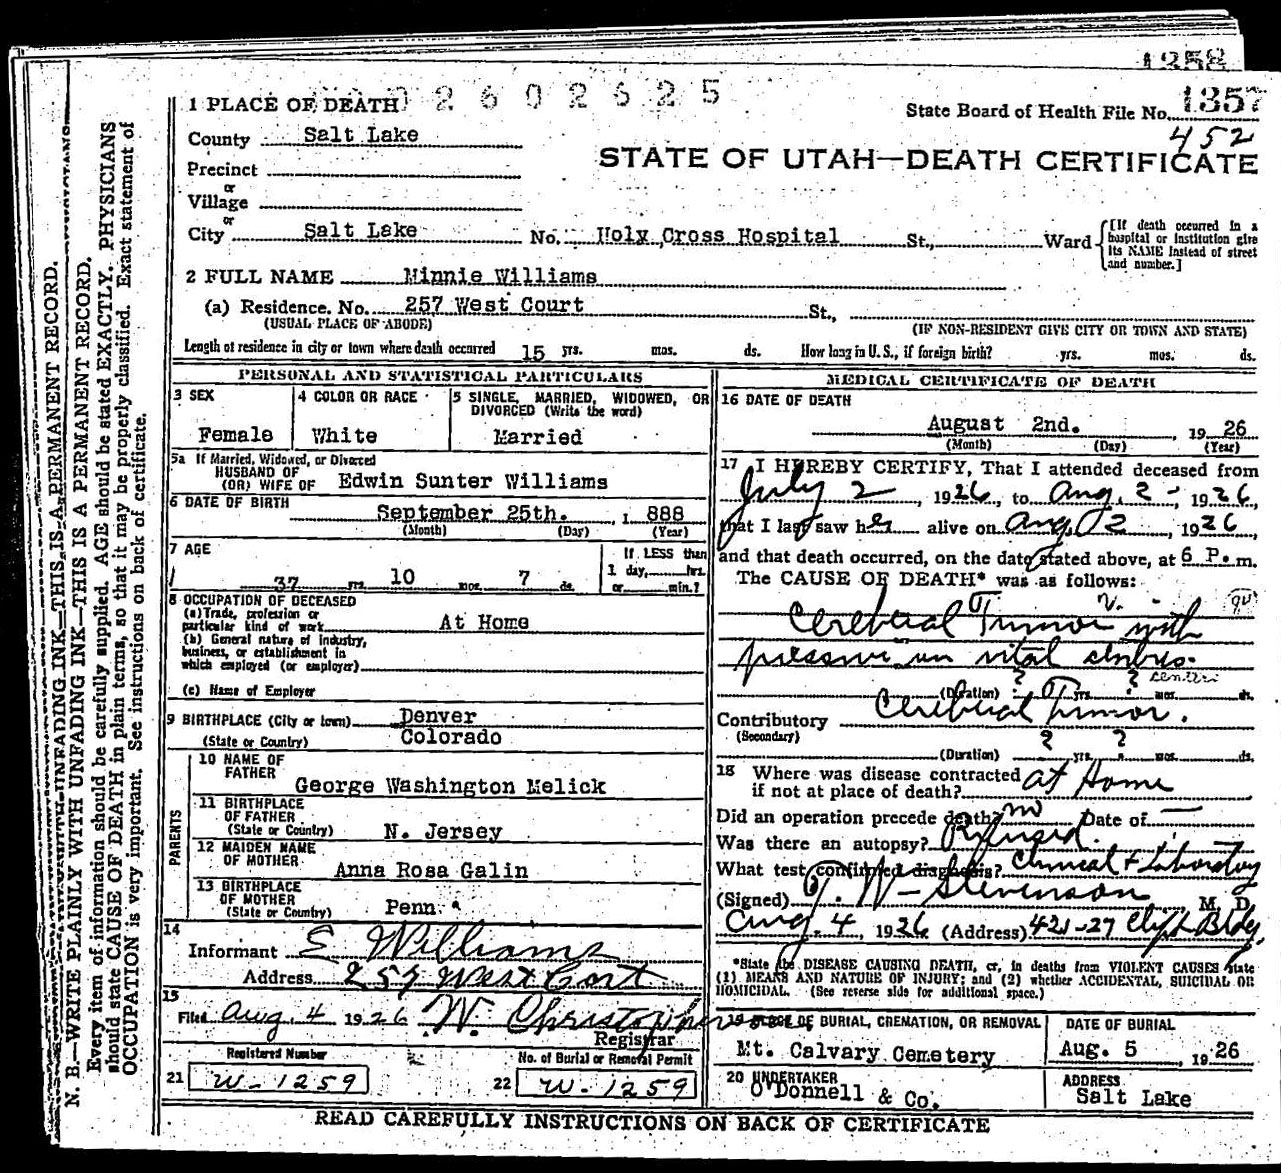 1358
2602625
1 PLACE OF DEATH
State Board of Health File No. 1357
452
County Salt Lake
STATE OF UTAH—DEATH CERTIFICATE
Precinct
or
Village
or
City Salt Lake No. Holy Cross Hospital St., Ward
[If death occurred in a hospital or institution give its NAME instead of street and number.]
2 FULL NAME Minnie Williams
(a) Residence. No. 257 West Court St.,
(USUAL PLACE OF ABODE) (IF NON-RESIDENT GIVE CITY OR TOWN AND STATE)
Length of residence in city or town where death occurred 15 yrs. mos. ds. How long in U. S., if foreign birth? yrs. mos. ds.
PERSONAL AND STATISTICAL PARTICULARS
3 SEX Female
4 COLOR OR RACE White
5 SINGLE, MARRIED, WIDOWED, OR DIVORCED (Write the word) Married
5a If Married, Widowed, or Divorced
HUSBAND OF
(OR) WIFE OF Edwin Sunter Williams
6 DATE OF BIRTH September 25th. 1 888
(Month) (Day) (Year)
7 AGE 37 yrs. 10 mos. 7 ds.
If LESS than
1 day, hrs.
or min.?
8 OCCUPATION OF DECEASED
(a) Trade, profession or
particular kind of work At Home
(b) General nature of industry,
business, or establishment in
which employed (or employer)
(c) Name of Employer
9 BIRTHPLACE (City or town) Denver
(State or Country) Colorado
PARENTS
10 NAME OF
FATHER George Washington Melick
11 BIRTHPLACE
OF FATHER
(State or Country) N. Jersey
12 MAIDEN NAME
OF MOTHER Anna Rosa Galin
13 BIRTHPLACE
OF MOTHER
(State or Country) Penn.
14
Informant E Williams
Address 257 West Cort
15
Filed Aug. 4 1926 W. Christopherson
Registrar
Registered Number
21 W-1259
No. of Burial or Removal Permit
22 W-1259
MEDICAL CERTIFICATE OF DEATH
16 DATE OF DEATH
August 2nd. , 19 26
(Month) (Day) (Year)
17 I HEREBY CERTIFY, That I attended deceased from
July 2 , 1926, to Aug. 2 - 1926,
that I last saw her alive on Aug 2 , 1926,
and that death occurred, on the date stated above, at 6 P. m.
The CAUSE OF DEATH* was as follows:
Cerebral Tumor with
pressure on vital centres.
centers
(Duration) ? yrs. ? mos. ds.
Contributory Cerebral Tumor.
(Secondary)
(Duration) ? yrs. ? mos. ds.
18 Where was disease contracted
if not at place of death? At Home
Did an operation precede death? no Date of —
Was there an autopsy? Refused.
What test confirmed diagnosis? Clinical & Laboratory
(Signed) T. W. Stevenson M. D.
Aug. 4 , 1926 (Address) 421-27 Clift Bldg.
*State the DISEASE CAUSING DEATH, or, in deaths from VIOLENT CAUSES state
(1) MEANS AND NATURE OF INJURY; and (2) whether ACCIDENTAL, SUICIDAL OR
HOMICIDAL. (See reverse side for additional space.)
19 PLACE OF BURIAL, CREMATION, OR REMOVAL
Mt. Calvary Cemetery
DATE OF BURIAL
Aug. 5 , 19 26
20 UNDERTAKER
O'Donnell & Co.
ADDRESS
Salt Lake
READ CAREFULLY INSTRUCTIONS ON BACK OF CERTIFICATE
N. B.—WRITE PLAINLY WITH UNFADING INK—THIS IS A PERMANENT RECORD.
Every item of information should be carefully supplied. AGE should be stated EXACTLY. PHYSICIANS
should state CAUSE OF DEATH in plain terms, so that it may be properly classified. Exact statement of
OCCUPATION is very important. See instructions on back of certificate.
UNFADING INK—THIS IS A PERMANENT RECORD.